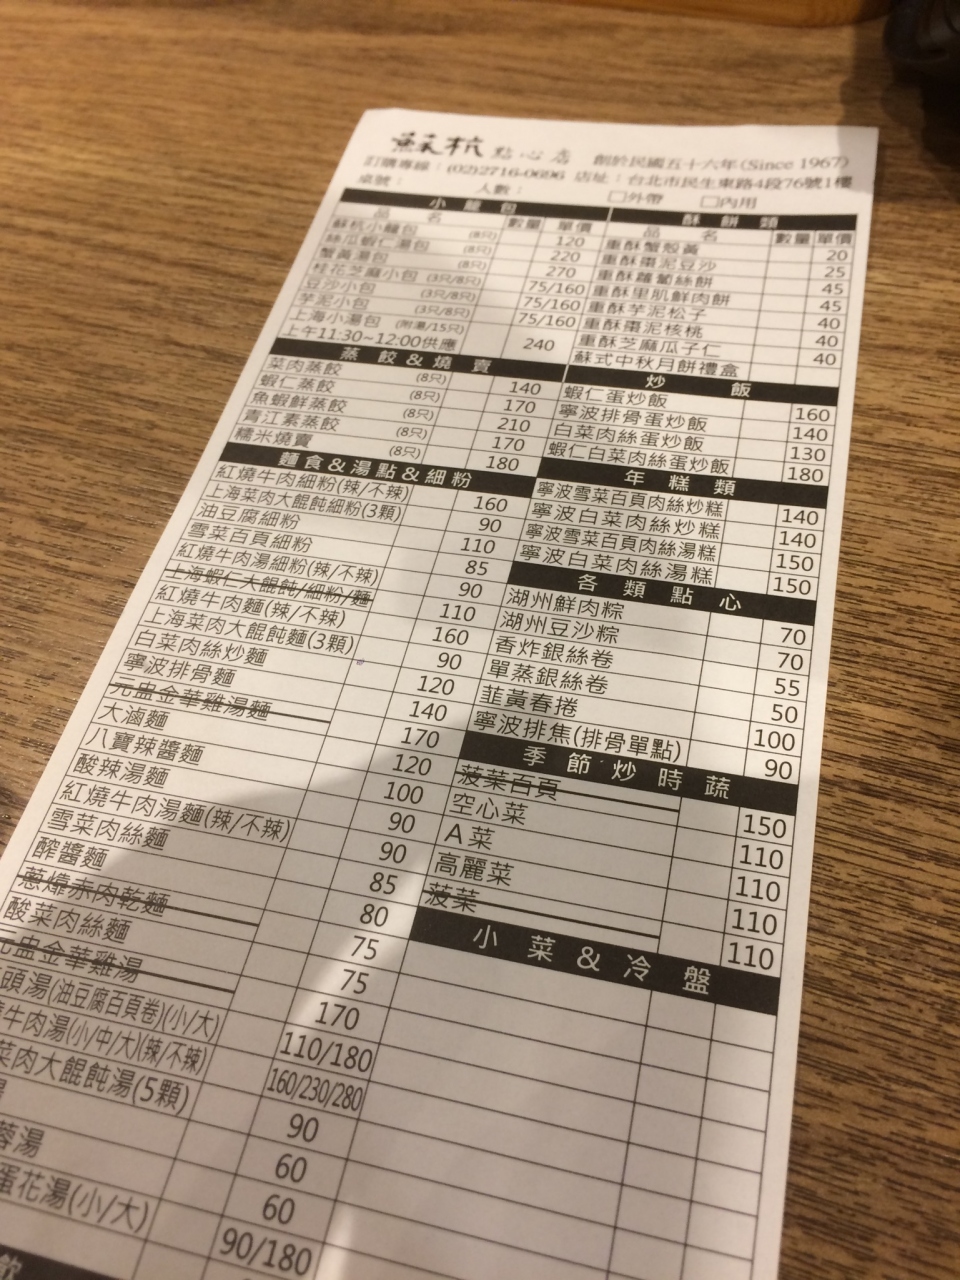 蘇杭 點心店 創於民國五十六年(Since 1967)
訂購專線：(02)2716-0696 店址：台北市民生東路4段76號1樓
桌號： 人數： □外帶 □內用
小籠包
品名 數量 單價
蘇杭小籠包 (8只) 120
絲瓜蝦仁湯包 (8只) 220
蟹黃湯包 (8只) 270
桂花芝麻小包 (3只/8只) 75/160
豆沙小包 (3只/8只) 75/160
芋泥小包 (3只/8只) 75/160
上海小湯包 (附湯/15只) 240
上午11:30~12:00供應
蒸餃&燒賣
菜肉蒸餃 (8只) 140
蝦仁蒸餃 170
魚蝦鮮蒸餃 (8只) 210
青江素蒸餃 (8只) 170
糯米燒賣 (8只) 180
麵食&湯點&細粉
紅燒牛肉細粉(辣/不辣) 160
上海菜肉大餛飩細粉(3顆) 90
油豆腐細粉 110
雪菜百頁細粉 85
紅燒牛肉湯細粉(辣/不辣) 90
上海蝦仁大餛飩/細粉/麵 110
紅燒牛肉麵(辣/不辣) 160
上海菜肉大餛飩麵(3顆) 90
白菜肉絲炒麵 120
寧波排骨麵 140
元盅金華雞湯麵 170
大滷麵 120
八寶辣醬麵 100
酸辣湯麵 90
紅燒牛肉湯麵(辣/不辣) 90
雪菜肉絲麵 85
醡醬麵 80
蔥㸆赤肉乾麵 75
酸菜肉絲麵 75
元盅金華雞湯 170
頭湯(油豆腐百頁卷)(小/大) 110/180
牛肉湯(小/中/大)(辣/不辣) 160/230/280
菜肉大餛飩湯(5顆) 90
湯 60
蓉湯 60
蛋花湯(小/大) 90/180
飲
酥餅類
品名 數量 單價
重酥蟹殼黃 20
重酥棗泥豆沙 25
重酥蘿蔔絲餅 45
重酥里肌鮮肉餅 45
重酥芋泥松子 40
重酥棗泥核桃 40
重酥芝麻瓜子仁 40
蘇式中秋月餅禮盒
炒飯
蝦仁蛋炒飯 160
寧波排骨蛋炒飯 140
白菜肉絲蛋炒飯 130
蝦仁白菜肉絲蛋炒飯 180
年糕類
寧波雪菜百頁肉絲炒糕 140
寧波白菜肉絲炒糕 140
寧波雪菜百頁肉絲湯糕 150
寧波白菜肉絲湯糕 150
各類點心
湖州鮮肉粽 70
湖州豆沙粽 70
香炸銀絲卷 55
單蒸銀絲卷 50
韮黃春捲 100
寧波排焦(排骨單點) 90
季節炒時蔬
菠菜百頁 150
空心菜 110
A菜 110
高麗菜 110
菠菜 110
小菜&冷盤